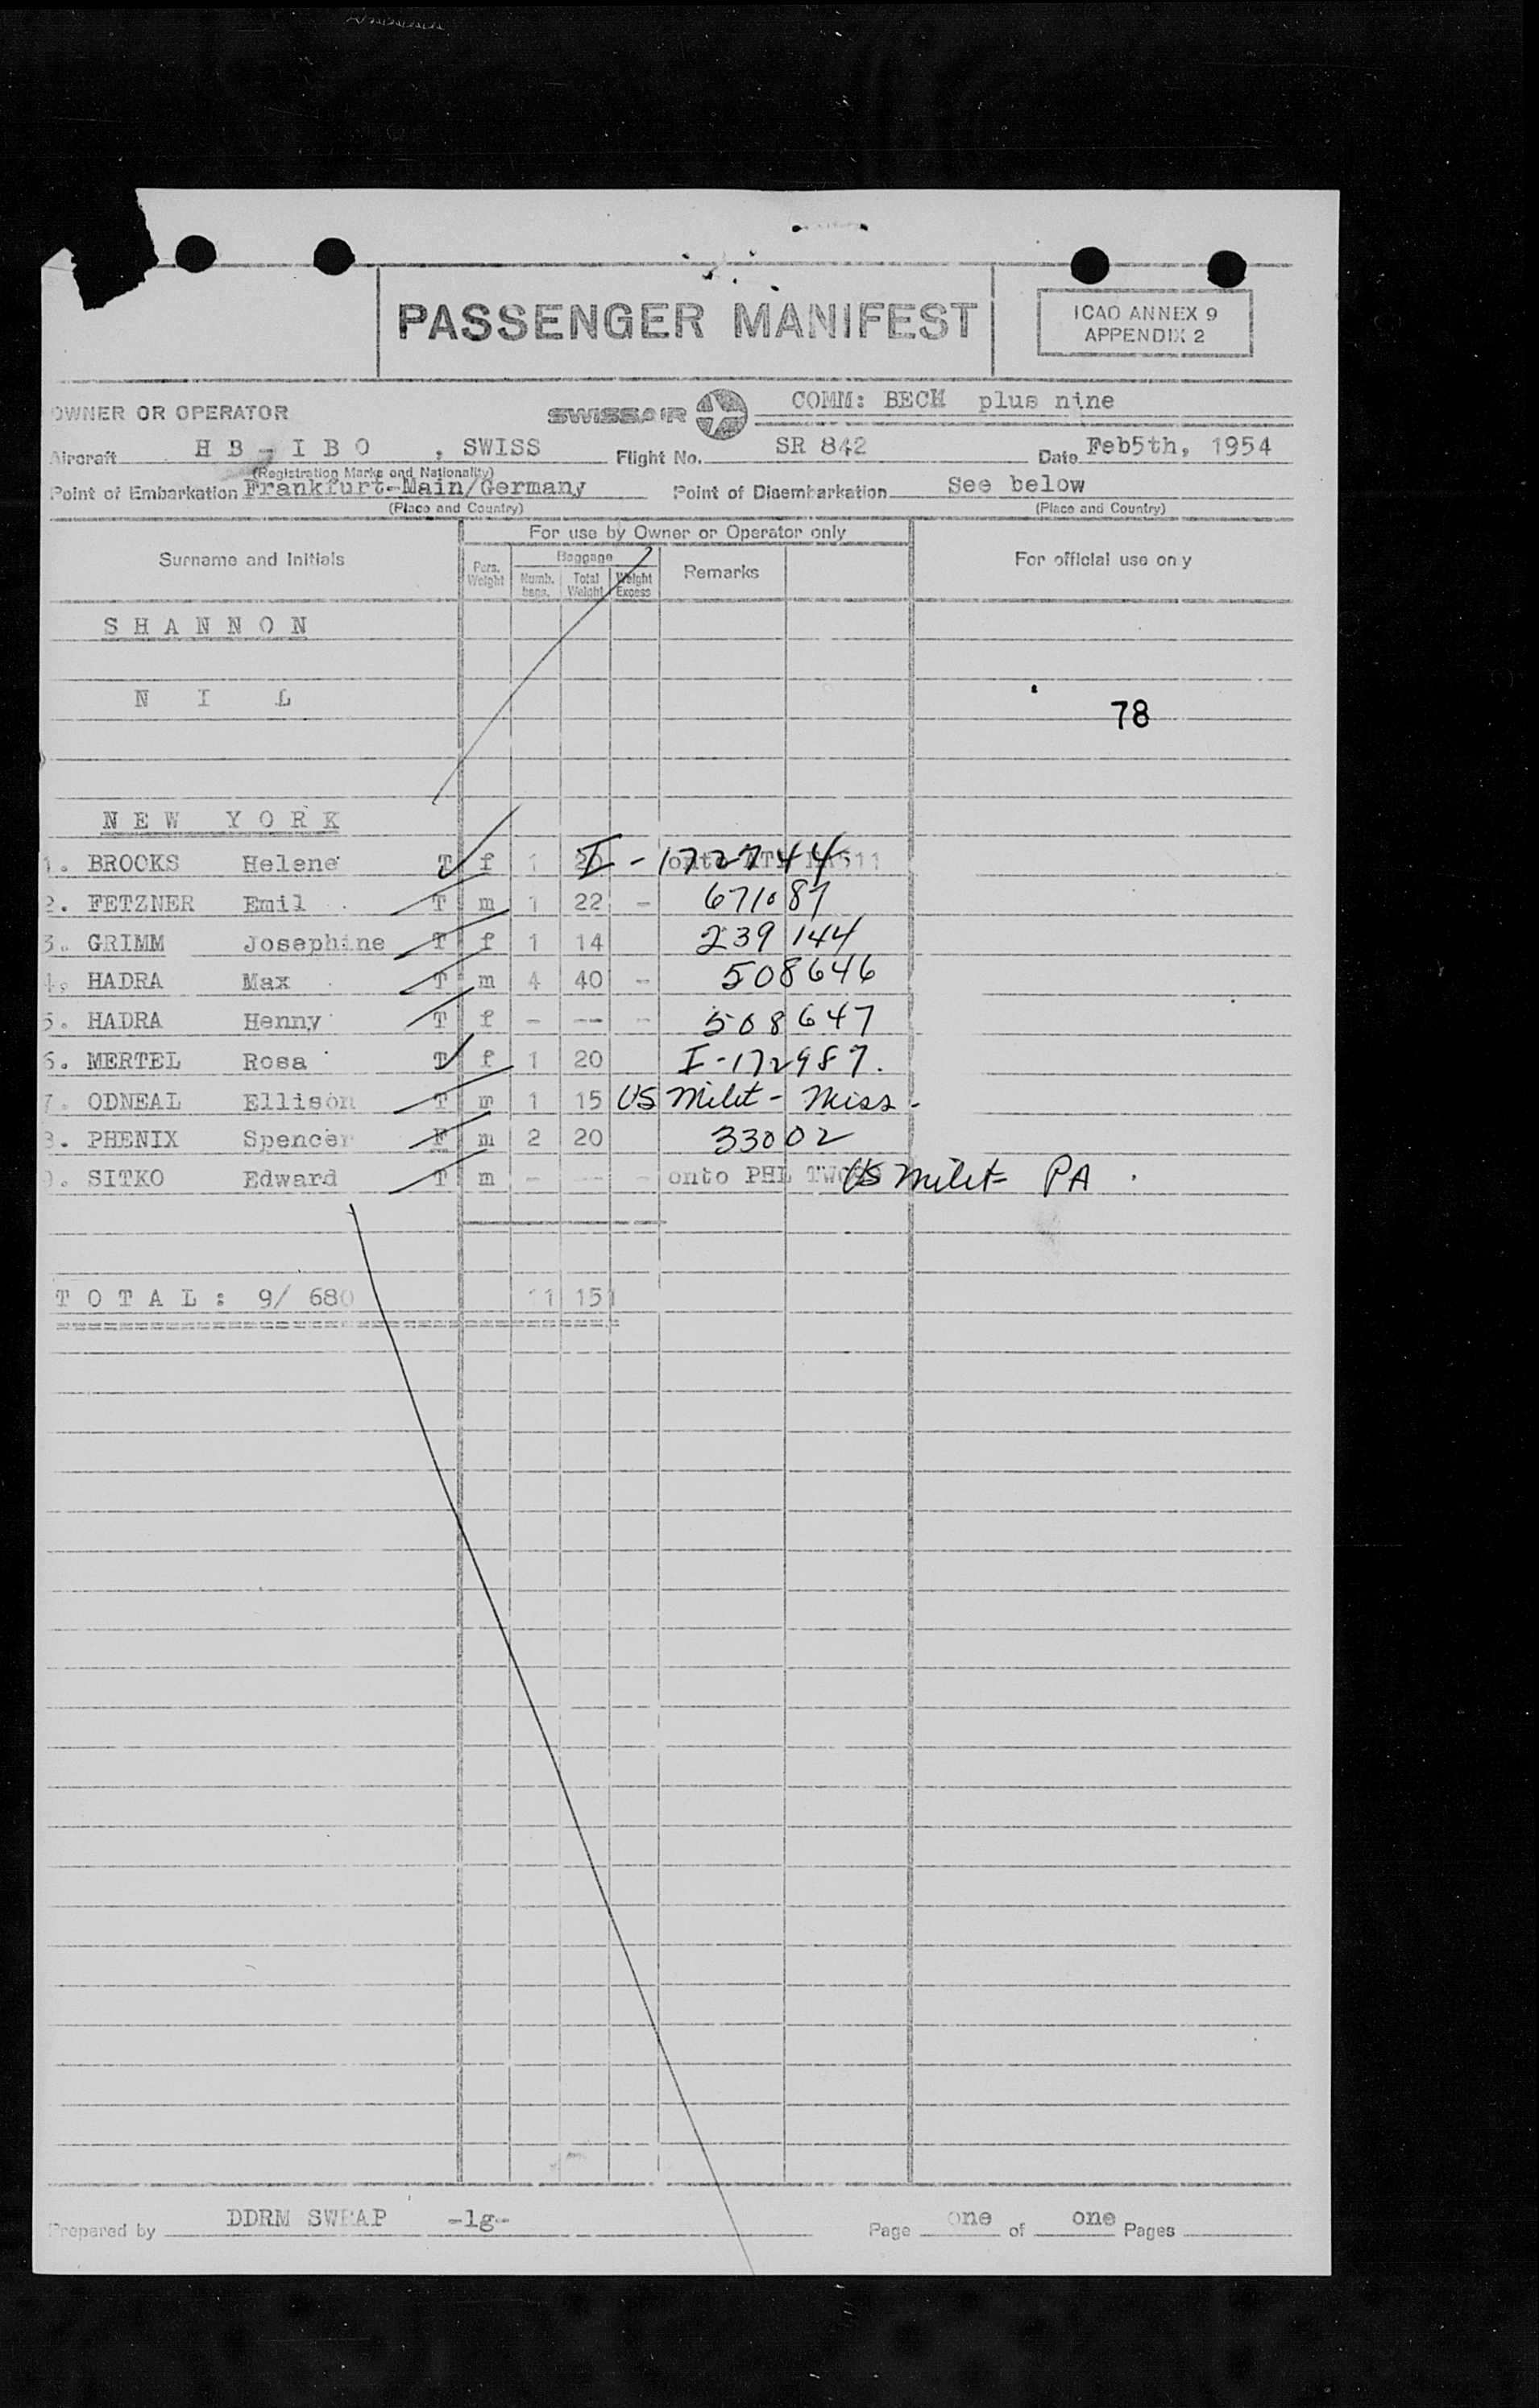 PASSENGER MANIFEST
ICAO ANNEX 9
APPENDIX 2
OWNER OR OPERATOR SWISSAIR COMM: BECH plus nine
Aircraft H B - I B O , SWISS Flight No. SR 842 Date Feb5th, 1954
(Registration Marks and Nationality)
Point of Embarkation Frankfurt-Main/Germany Point of Disembarkation See below
(Place and Country) (Place and Country)
For use by Owner or Operator only
Surname and Initials Pers. Weight Baggage Numb. bags. Total Weight Weight Excess Remarks For official use only
S H A N N O N
N I L
78
N E W Y O R K
1. BROOKS Helene T f 1 20 I-172744 onto
2. FETZNER Emil T m 1 22 - 671087
3. GRIMM Josephine T f 1 14 239144
4. HADRA Max T m 4 40 - 508646
5. HADRA Henny T f - -- -- 508647
6. MERTEL Rosa T f 1 20 I-172987.
7. ODNEAL Ellison T m 1 15 US Milit - Miss.
8. PHENIX Spencer F m 2 20 33002
9. SITKO Edward T m - -- - onto PHL US Milit PA
T O T A L : 9/ 680 11 151
Prepared by DDRM SWRAP -lg- Page one of one Pages